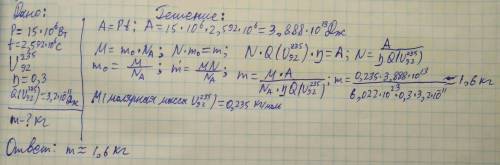 Дано:
P=15·10⁶Вт
t=2,592·10⁶с
U₉₂²³⁵
η=0,3
Q(U₉₂²³⁵)=3,2·10⁻¹¹Дж
m-? кг
Решение:
A=Pt; A=15·10⁶·2,592·10⁶=3,888·10¹³Дж
M=m₀·N_A; N·m₀=m; N·Q(U₉₂²³⁵)·η=A; N=A/(ηQ(U₉₂²³⁵))
m₀=M/N_A; m=MN/N_A; m=M·A/(N_A·ηQ(U₉₂²³⁵)); m=0,235·3,888·10¹³/(6,022·10²³·0,3·3,2·10⁻¹¹)≈1,6кг
M(молярная масса U₉₂²³⁵)=0,235 кг/моль
Ответ: m≈1,6 кг